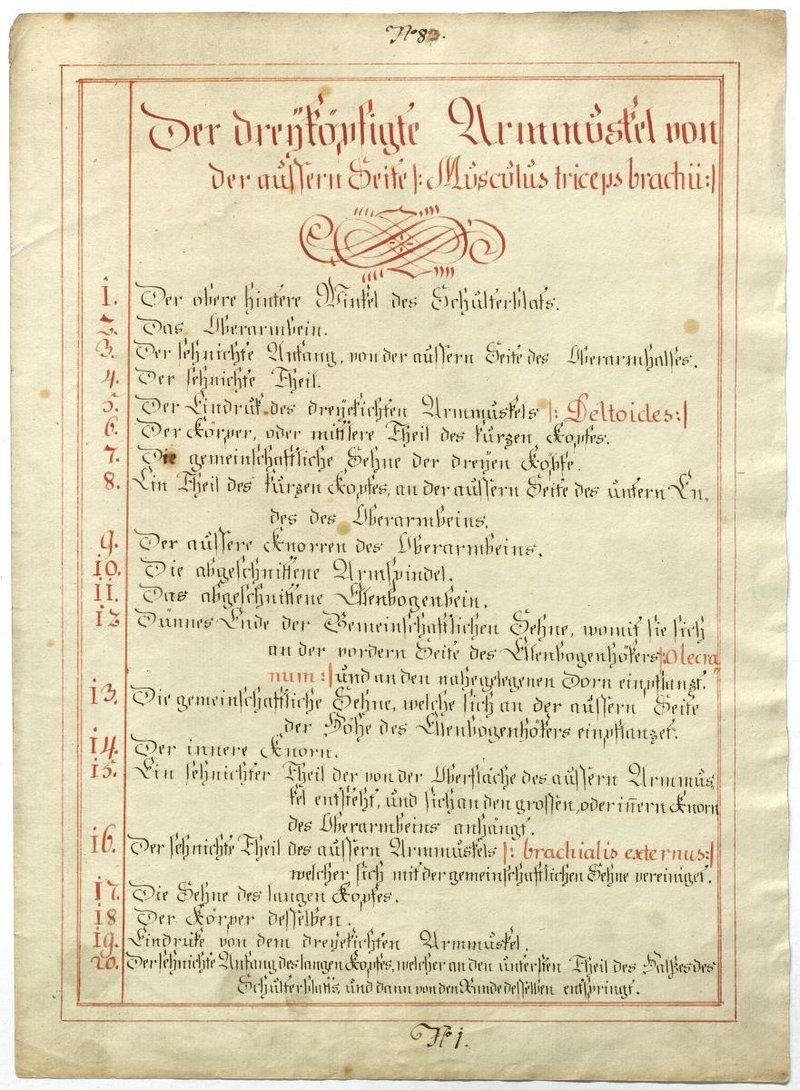 No 82.
Der dreÿköpfigte Armmuskel von
der aüssern Seite |: Músculus triceps brachii:|
1. Der obere hintere Winkel des Schulterblats.
2. Das Oberarmbein.
3. Der sehnichte Anfang, von der aüssern Seite des Oberarmhalses.
4. Der sehnichte Theil.
5. Der Eindruk des dreÿekichten Armmuskels |: Deltoides:|
6. Der Körper, oder mittlere Theil des kurzen Kopfes.
7. Die gemeinschaftliche Sehne der dreÿen Köpfe.
8. Ein Theil des kurzen Kopfes, an der aüssern Seite des untern En,
des des Oberarmbeins.
9. Der aüssere Knorren des Oberarmbeins.
10. Die abgeschnittene Armspindel.
11. Das abgeschnittene Ellenbogenbein.
12 Dünnes Ende der Gemeinschaftlichen Sehne, womit sie sich
an der vordern Seite des Ellenbogenhökers |: Olecra
num :| und an den nahegelegenen Dorn einpflanzt.
13. Die gemeinschaftliche Sehne, welche sich an der aüssern Seite
der Höhe des Ellenbogenhökers einpflanzet.
14. Der innere Knorn.
15. Ein sehnichter Theil der von der Oberfläche des aüssern Armmus,
kel entsteht, und sich an den grossen, oder iñern Knorn
des Oberarmbeins anhängt.
16. Der sehnichte Theil des aüssern Armmuskels |: brachialis externus:|
welcher sich mit der gemeinschaftlichen Sehne vereiniget.
17. Die Sehne des langen Kopfes.
18 Der Körper desselben.
19. Eindruke von dem dreÿekichten Armmuskel.
20. Der sehnichte Anfang des langen Kopfes, welcher an den untersten Theil des Halses des
Schulterblatts, und dann von den Rande desselben entspringt.
No 1.